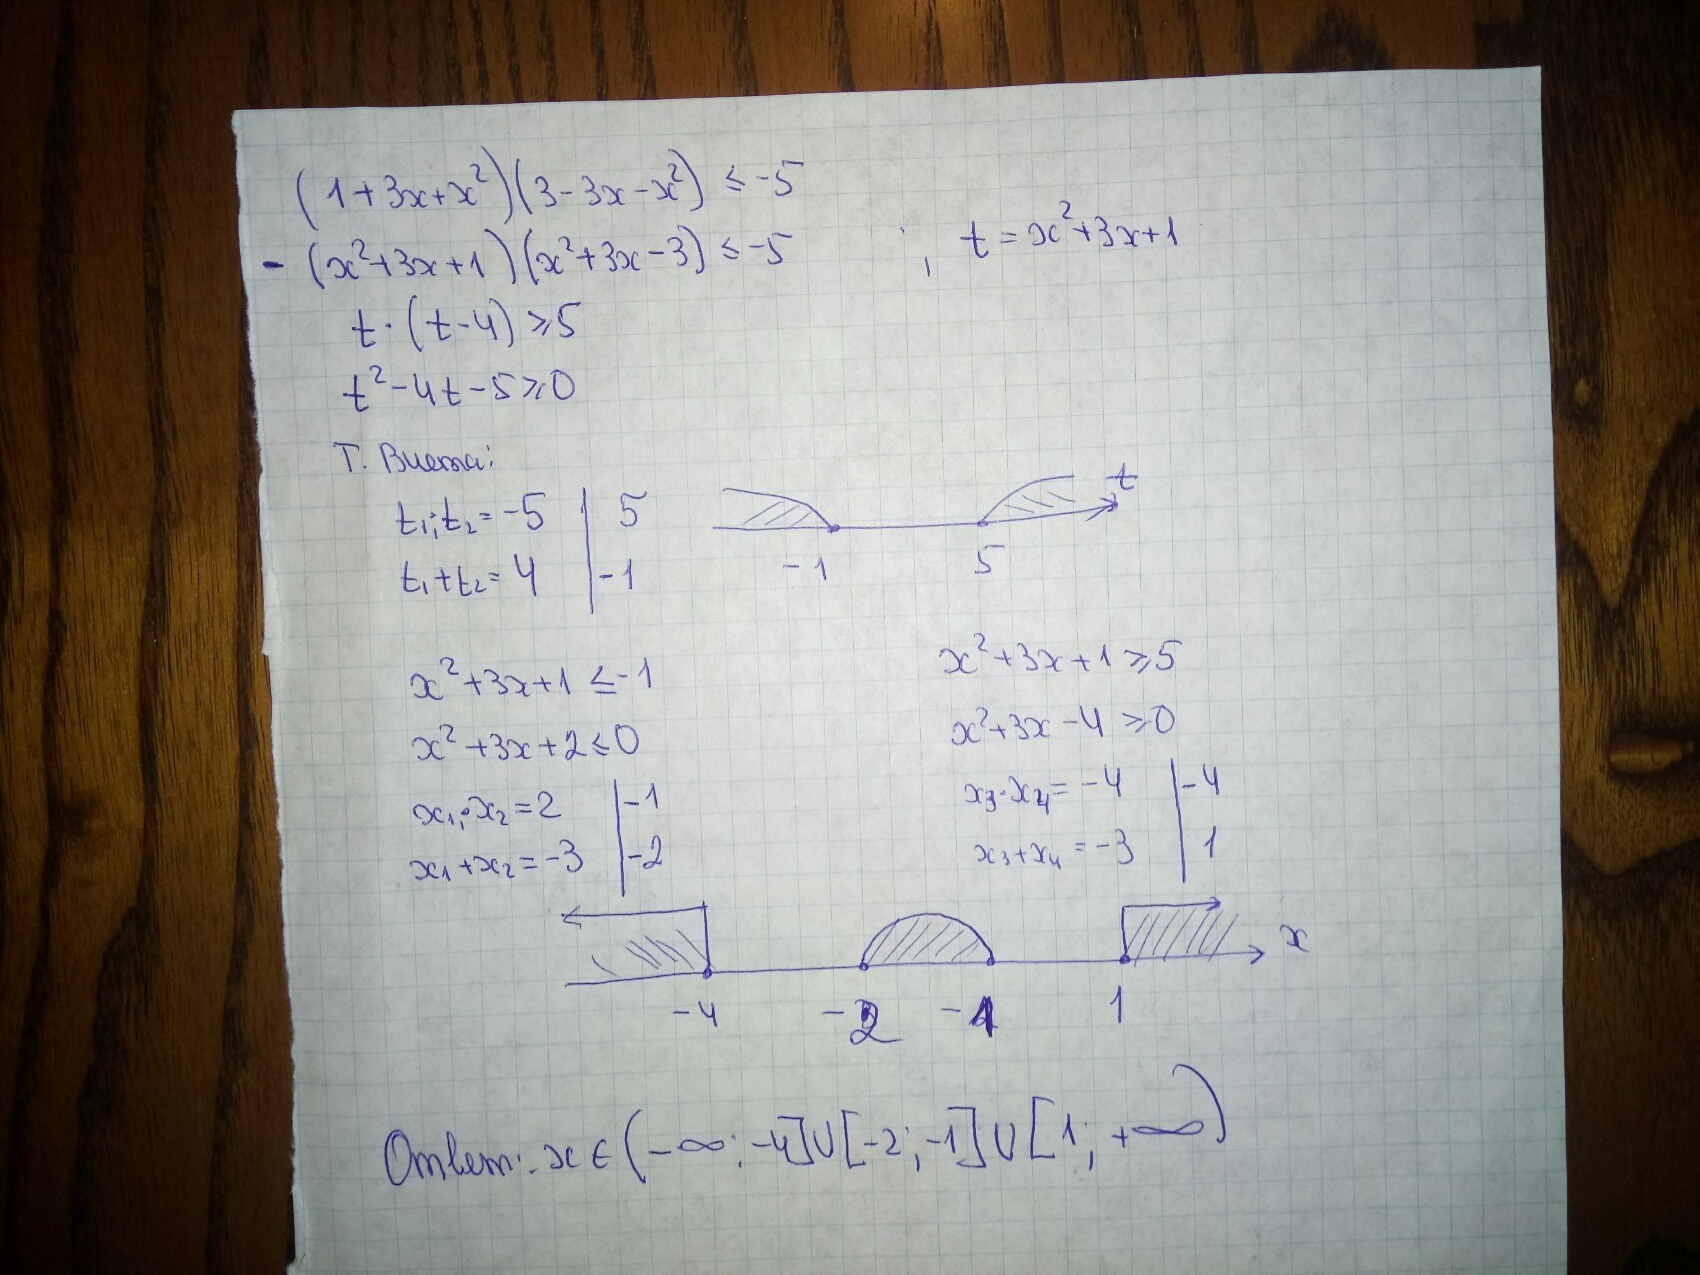 (1+3x+x²)(3-3x-x²) ≤ -5
-(x²+3x+1)(x²+3x-3) ≤ -5 ; t = x²+3x+1
t·(t-4) ≥ 5
t²-4t-5 ≥ 0
Т. Виета:
t₁·t₂ = -5 | 5
t₁+t₂ = 4 | -1
t
-1 5
x²+3x+1 ≤ -1
x²+3x+2 ≤ 0
x₁·x₂ = 2 | -1
x₁+x₂ = -3 | -2
x²+3x+1 ≥ 5
x²+3x-4 ≥ 0
x₃·x₄ = -4 | -4
x₃+x₄ = -3 | 1
x
-4 -2 -1 1
Ответ: x ∈ (-∞; -4] ∪ [-2; -1] ∪ [1; +∞)